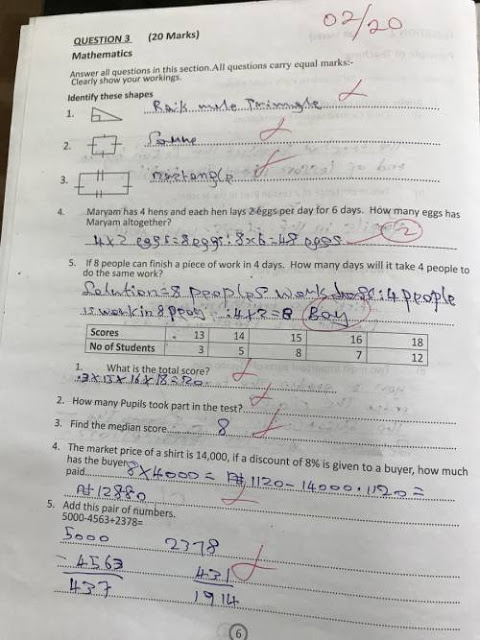 02/20
QUESTION 3 (20 Marks)
Mathematics
Answer all questions in this section. All questions carry equal marks:-
Clearly show your workings.
Identify these shapes
1. Raik mule Trimugle
2.
3. rectangle
4. Maryam has 4 hens and each hen lays 2 eggs per day for 6 days. How many eggs has
Maryam altogether?
4x2 eggs=8eggs:8x6=48 eggs 2
5. If 8 people can finish a piece of work in 4 days. How many days will it take 4 people to
do the same work?
Solution=8 peoples work :4 people
is work in 8 :4x2=8 Bay
Scores 13 14 15 16 18
No of Students 3 5 8 7 12
1. What is the total score?
x15x16x18=20
2. How many Pupils took part in the test?
3. Find the median score 8
4. The market price of a shirt is 14,000, if a discount of 8% is given to a buyer, how much
has the buyer
paid 8x4000= ₦1120-14000.1120=
₦12880
5. Add this pair of numbers.
5000-4563+2378=
5000 2378
- 4563 431
437 1914
6